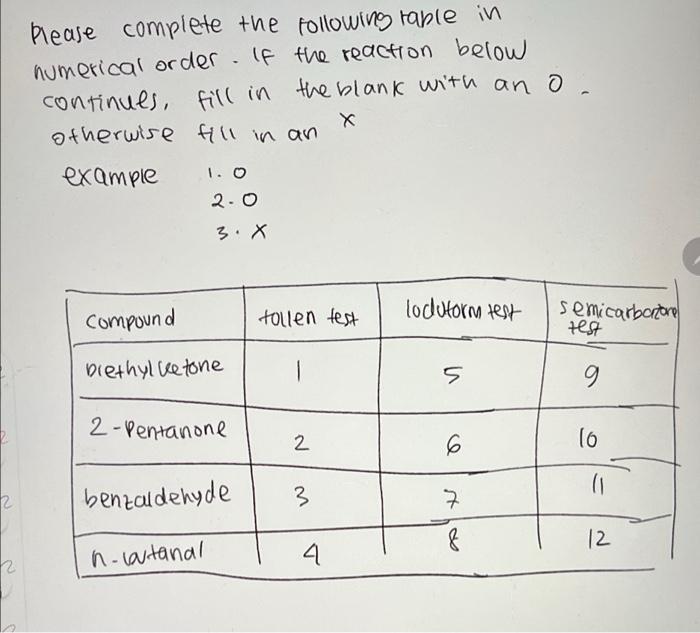 Please complete the following table in
numerical order. If the reaction below
continues, fill in the blank with an O.
otherwise fill in an x
example 1. O
2. O
3. X
compound tollen test Iodoform test semicarbazone test
Diethyl ketone 1 5 9
2-Pentanone 2 6 10
benzaldehyde 3 7 11
n-butanal 4 8 12